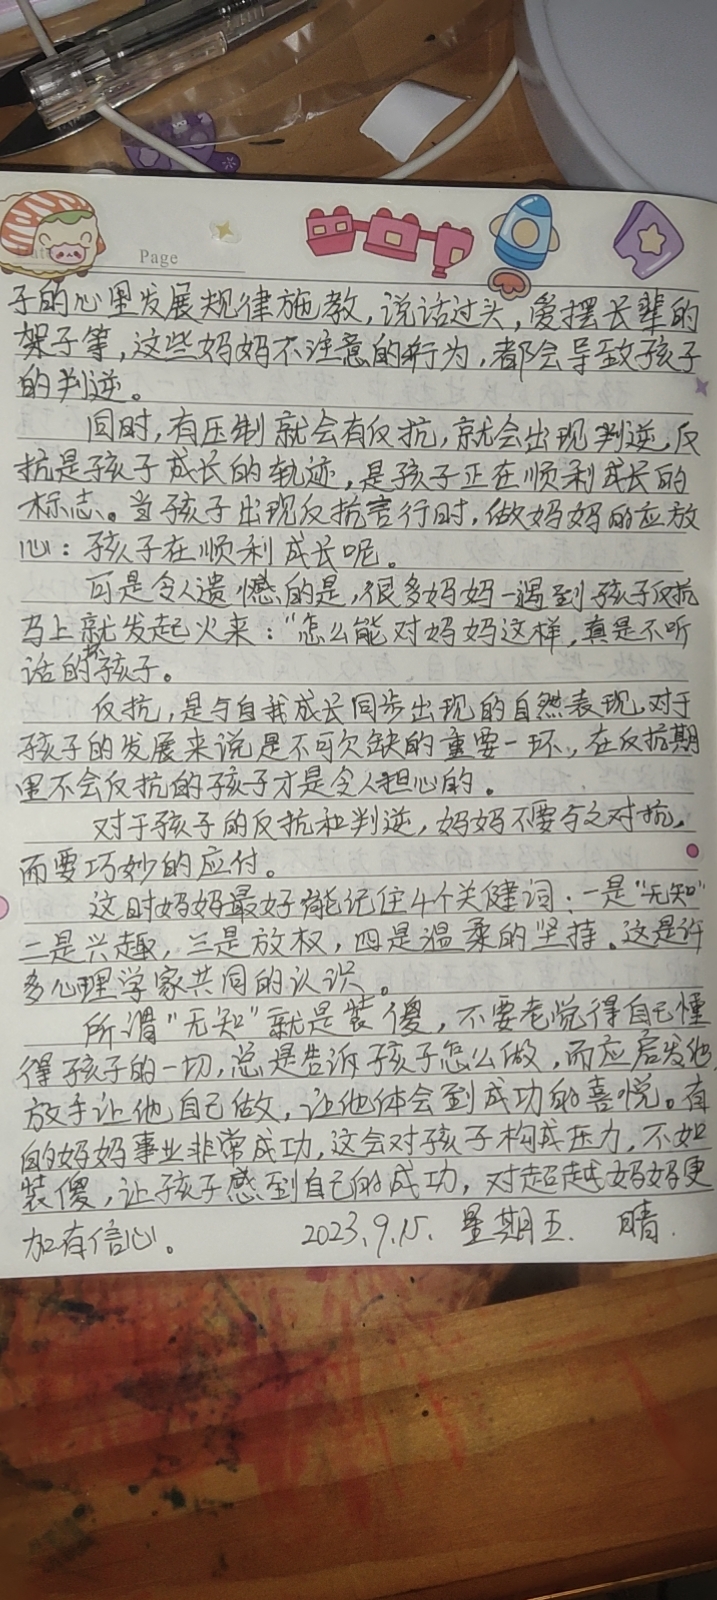 Page
子的心里发展规律施教，说话过头，爱摆长辈的
架子等，这些妈妈不注意的行为，都会导致孩子
的判逆。
同时，有压制就会有反抗，就会出现判逆，反
抗是孩子成长的轨迹，是孩子正在顺利成长的
标志。当孩子出现反抗言行时，做妈妈的应放
心：孩子在顺利成长呢。
可是令人遗憾的是，很多妈妈一遇到孩子反抗
马上就发起火来：“怎么能对妈妈这样，真是不听
话的孩子。
反抗，是与自我成长同步出现的自然表现，对于
孩子的发展来说是不可欠缺的重要一环，在反抗期
里不会反抗的孩子才是令人担心的。
对于孩子的反抗和判逆，妈妈不要与之对抗，
而要巧妙的应付。
这时妈妈最好能记住4个关健词：一是“无知”
二是兴趣，三是放权，四是温柔的坚持。这是许
多心理学家共同的认识。
所谓“无知”就是装傻，不要老觉得自己懂
得孩子的一切，总是告诉孩子怎么做，而应启发他，
放手让他自己做，让他体会到成功的喜悦。有
的妈妈事业非常成功，这会对孩子构成压力，不如
装傻，让孩子感到自己的成功，对超越妈妈更
加有信心。 2023.9.15. 星期五. 晴.